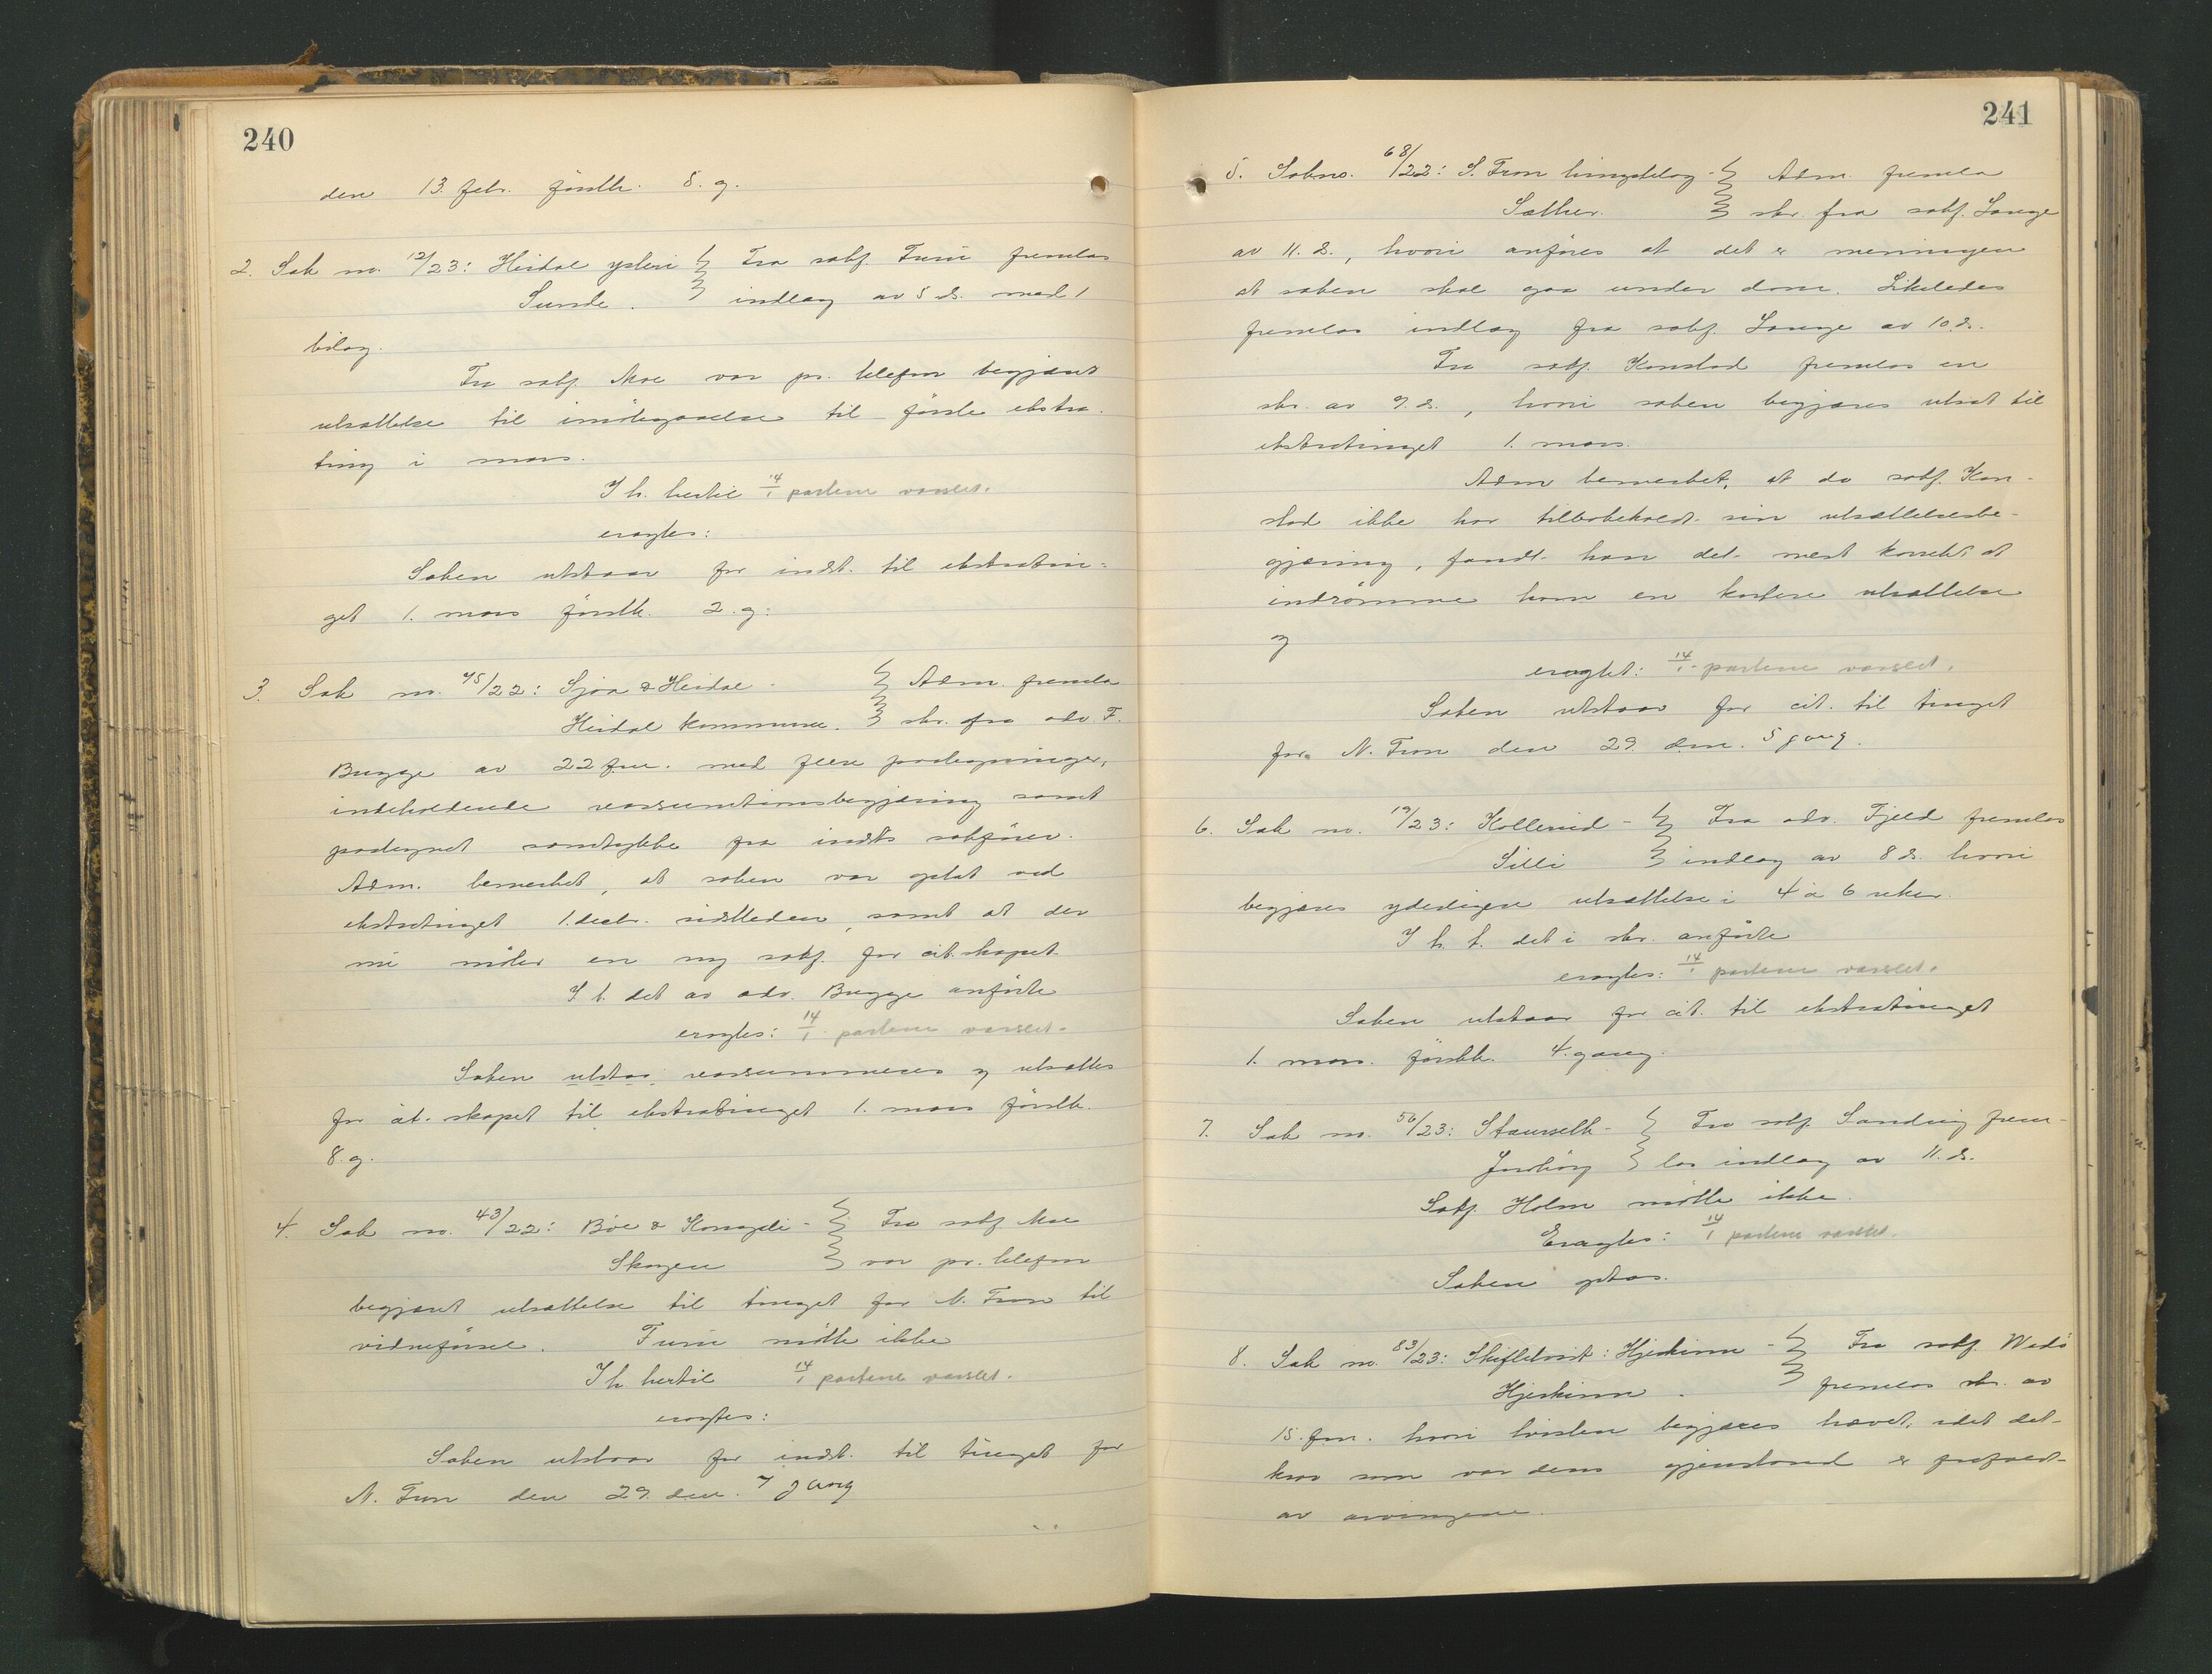 240
den 13. febr. førstk. 8. g.
2. Sak no. 12/23: Heidal ysteri } Fra sakf. Furu fremlas
Sunde. } indlæg av 5 ds. med 1
bilag.
Fra sakf. Moe var pr. telefon begjæret
utsættelse til imøtegaaelse til første ekstra-
ting i mars.
I h. hertil 14/1 partene varslet.
eragtes:
Saken utstaar for indst. til ekstratin-
get 1. mars førstk. 2. g.
3. Sak no. 45/22: Sjoa & Heidal - } Adm. fremla
Heidal kommune. } skr. fra adv. F.
Bugge av 22 fm. med flere paategninger,
indeholdende reassumtionsbegjæring samt
paategnet samtykke fra indsts sakfører.
Adm. bemerket, at saken var optat ved
ekstratinget 1. decbr. sidstleden, samt at der
nu møter en ny sakf. for cit.skapet.
I h. t. det av adv. Bugge anførte
eragtes: 14/1 partene varslet.
Saken utstaa reassummeres og utsættes
for cit.skapet til ekstratinget 1. mars førstk.
8. g.
4. Sak no. 43/22: Böe & Kongsli - } Fra sakf. Moe
Skogen } var pr. telefon
begjæret utsættelse til tinget for N. Fron til
vidneførsel. Furu møtte ikke
I h. hertil 14/1 partene varslet.
eragtes:
Saken utstaar for indst. til tinget for
N. Fron den 29. dm. 7 gang
241
5. Sakno. 68/22: S. Fron hingstelag - } Adm. fremla
Sæther. } skr. fra sakf. Lange
av 11. ds., hvori anføres at det er meningen
at saken skal gaa under dom. Likeledes
fremlas indlæg fra sakf. Lange av 10. ds.
Fra sakf. Konstad fremlas en
skr. av 9. ds., hvori saken begjæres utsat til
ekstratinget 1. mars.
Adm bemerket, at da sakf. Kon-
stad ikke har tilbakekaldt sin utsættelsesbe-
gjæring, fandt han det mest korrekt at
indrømme ham en kortere utsættelse
og
eragtet: 14/1 partene varslet.
Saken utstaar for cit. til tinget
for N. Fron den 29 dm. 5 gang.
6. Sak no. 19/23: Kollerud - } Fra adv. Fjeld fremlas
Silli } indlæg av 8 ds. hvori
begjæres yderligere utsættelse i 4 à 6 uker.
I h. t. det i skr. anførte
eragtes: 14/1 partene varslet.
Saken utstaar for cit. til ekstratinget
1. mars. førstk. 4. gang.
7. Sak no. 56/23: } Fra sakf. Sandvig frem-
} las indlæg av 11. ds.
Sakf. Holm møtte ikke.
Eragtes: 14/1 partene varslet.
Saken optas.
8. Sak no. 83/23: Skiftetvist: Hjerkinn - } Fra sakf. Wadö
Hjerkinn. } fremlas skr. av
15. fm. hvori tvisten begjæres hævet, idet det
krav som var dens gjenstand er frafaldt
av arvingene.